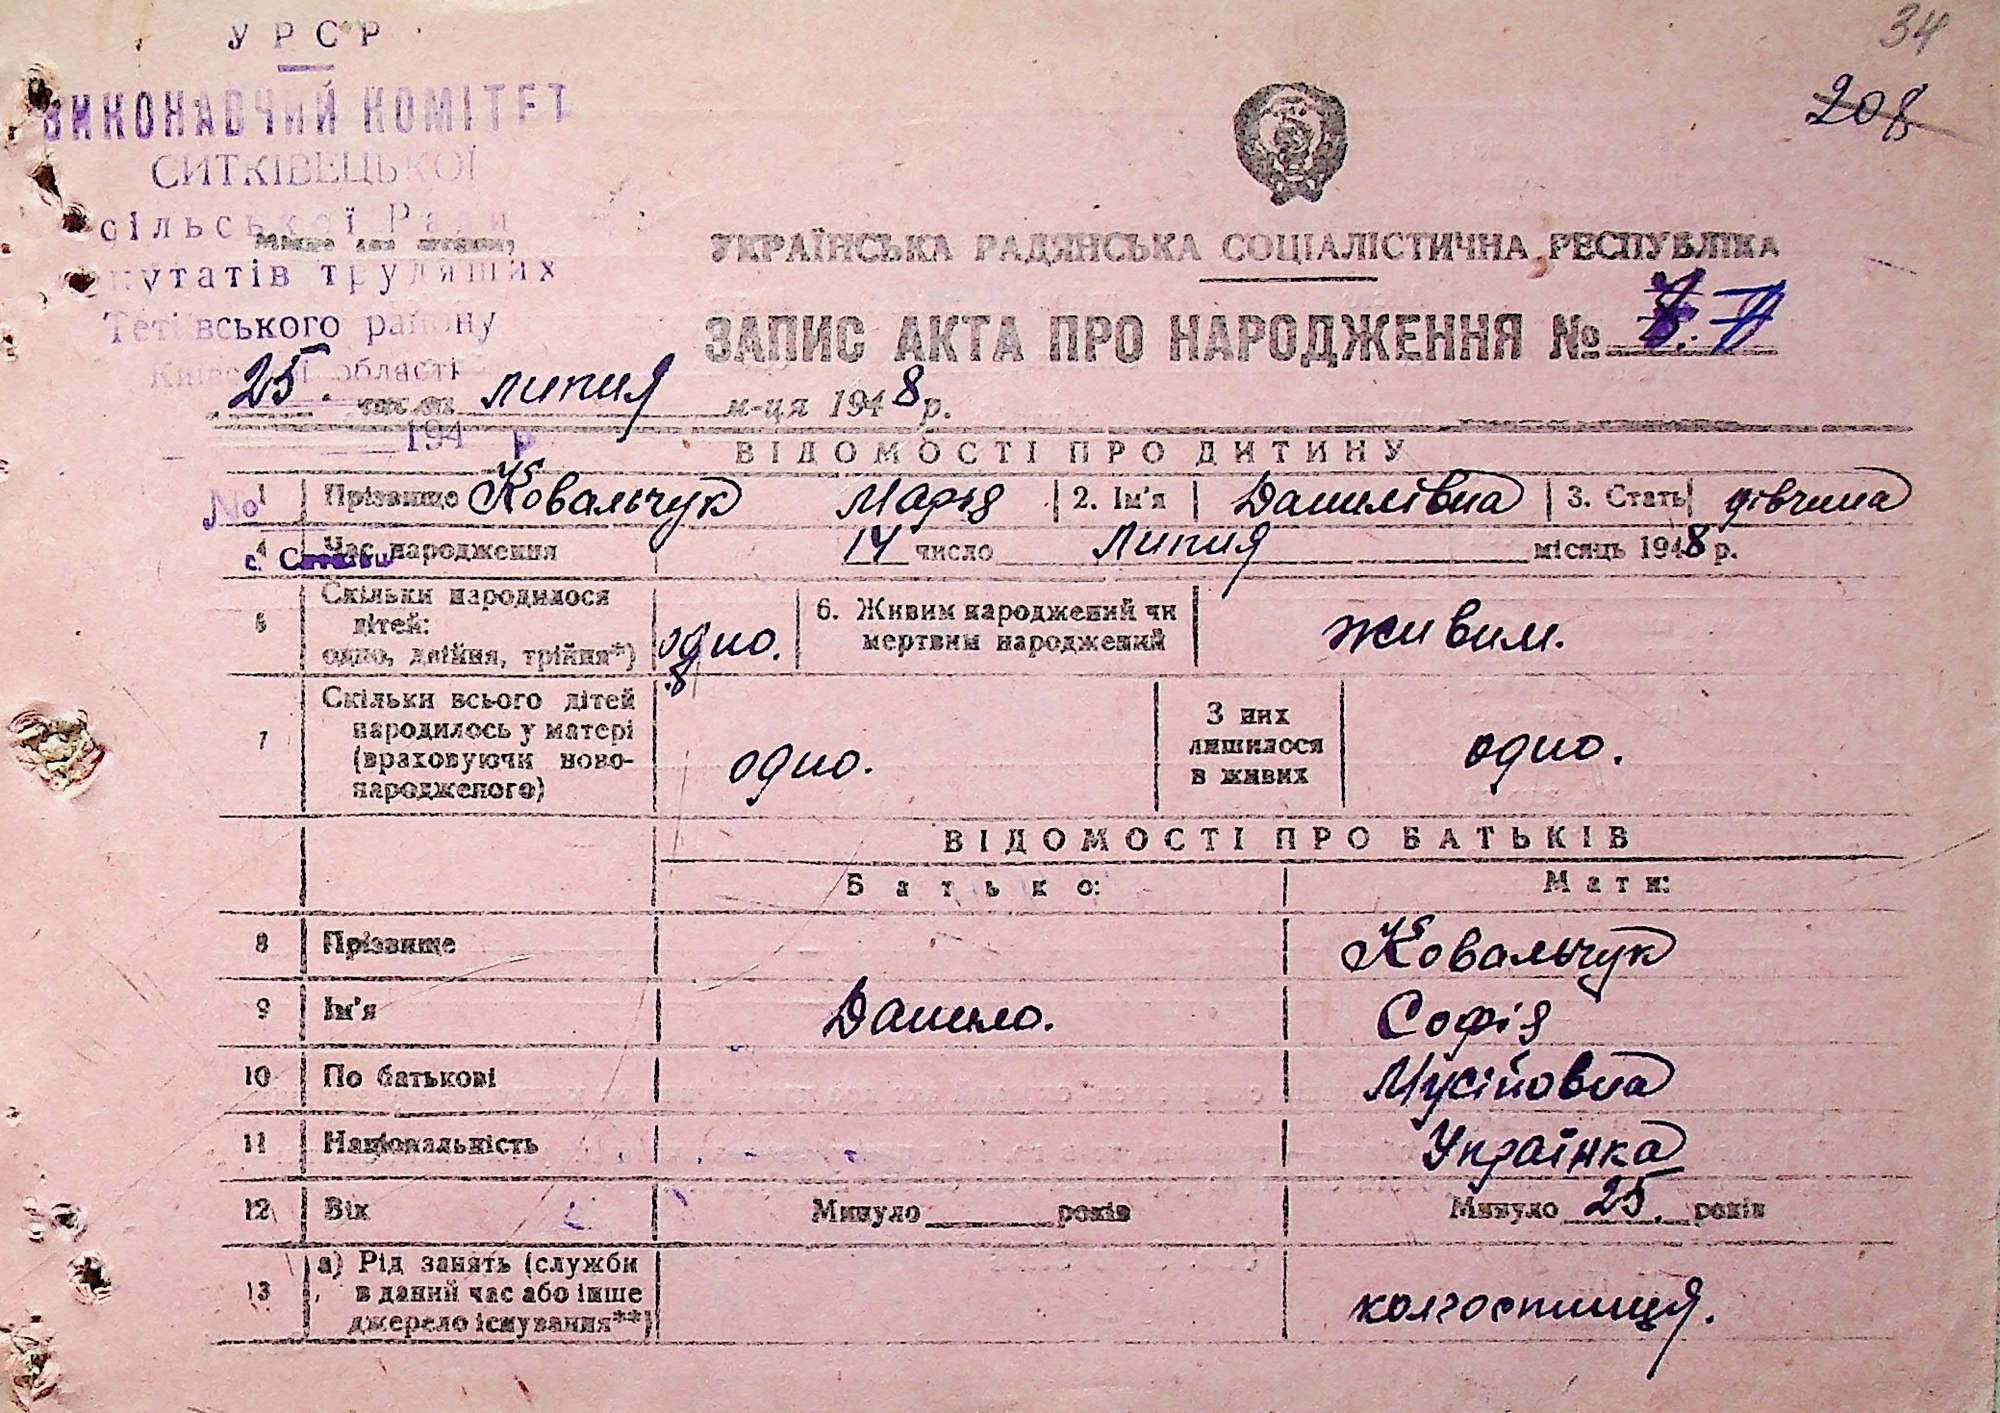 34
208
У Р С Р
ВИКОНАВЧИЙ КОМІТЕТ
СИТКІВЕЦЬКОЇ
сільської Ради
путатів трудящих
Тетіївського району
Київської області
194 р
№
с.
УКРАЇНСЬКА РАДЯНСЬКА СОЦІАЛІСТИЧНА РЕСПУБЛІКА
ЗАПИС АКТА ПРО НАРОДЖЕННЯ №
25. числа липня м-ця 1948 р.
ВІДОМОСТІ ПРО ДИТИНУ
1 Прізвище Ковальчук Марія 2. Ім'я Данилівна 3. Стать дівчина
4 Час народження 14 число Липня місяць 1948 р.
5 Скільки народилося
дітей:
одно, двійня, трійня*) одно.
6. Живим народжений чи
мертвим народжений живим.
7 Скільки всього дітей
народилось у матері
(враховуючи ново-
народженого) одно.
З них
лишилося
в живих одно.
ВІДОМОСТІ ПРО БАТЬКІВ
Батько: Мати:
8 Прізвище Ковальчук
9 Ім'я Данило. Софія
10 По батькові Мусійовна
11 Національність Українка
12 Вік Минуло років Минуло 25. років
13 а) Рід занять (служби
в даний час або інше
джерело існування**) колгоспниця.